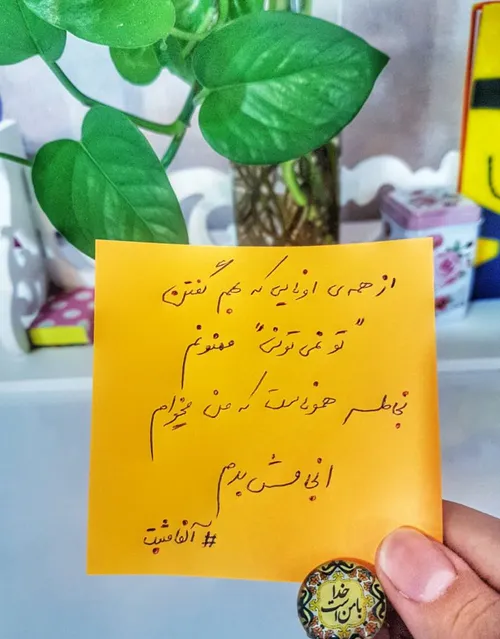 از همه‌ی اونایی که بهم گفتن
"تو نمی تونی" ممنونم
بخاطر هموناست که من میخوام
انجامش بدم
#آلفامثبت
خدا
با من است